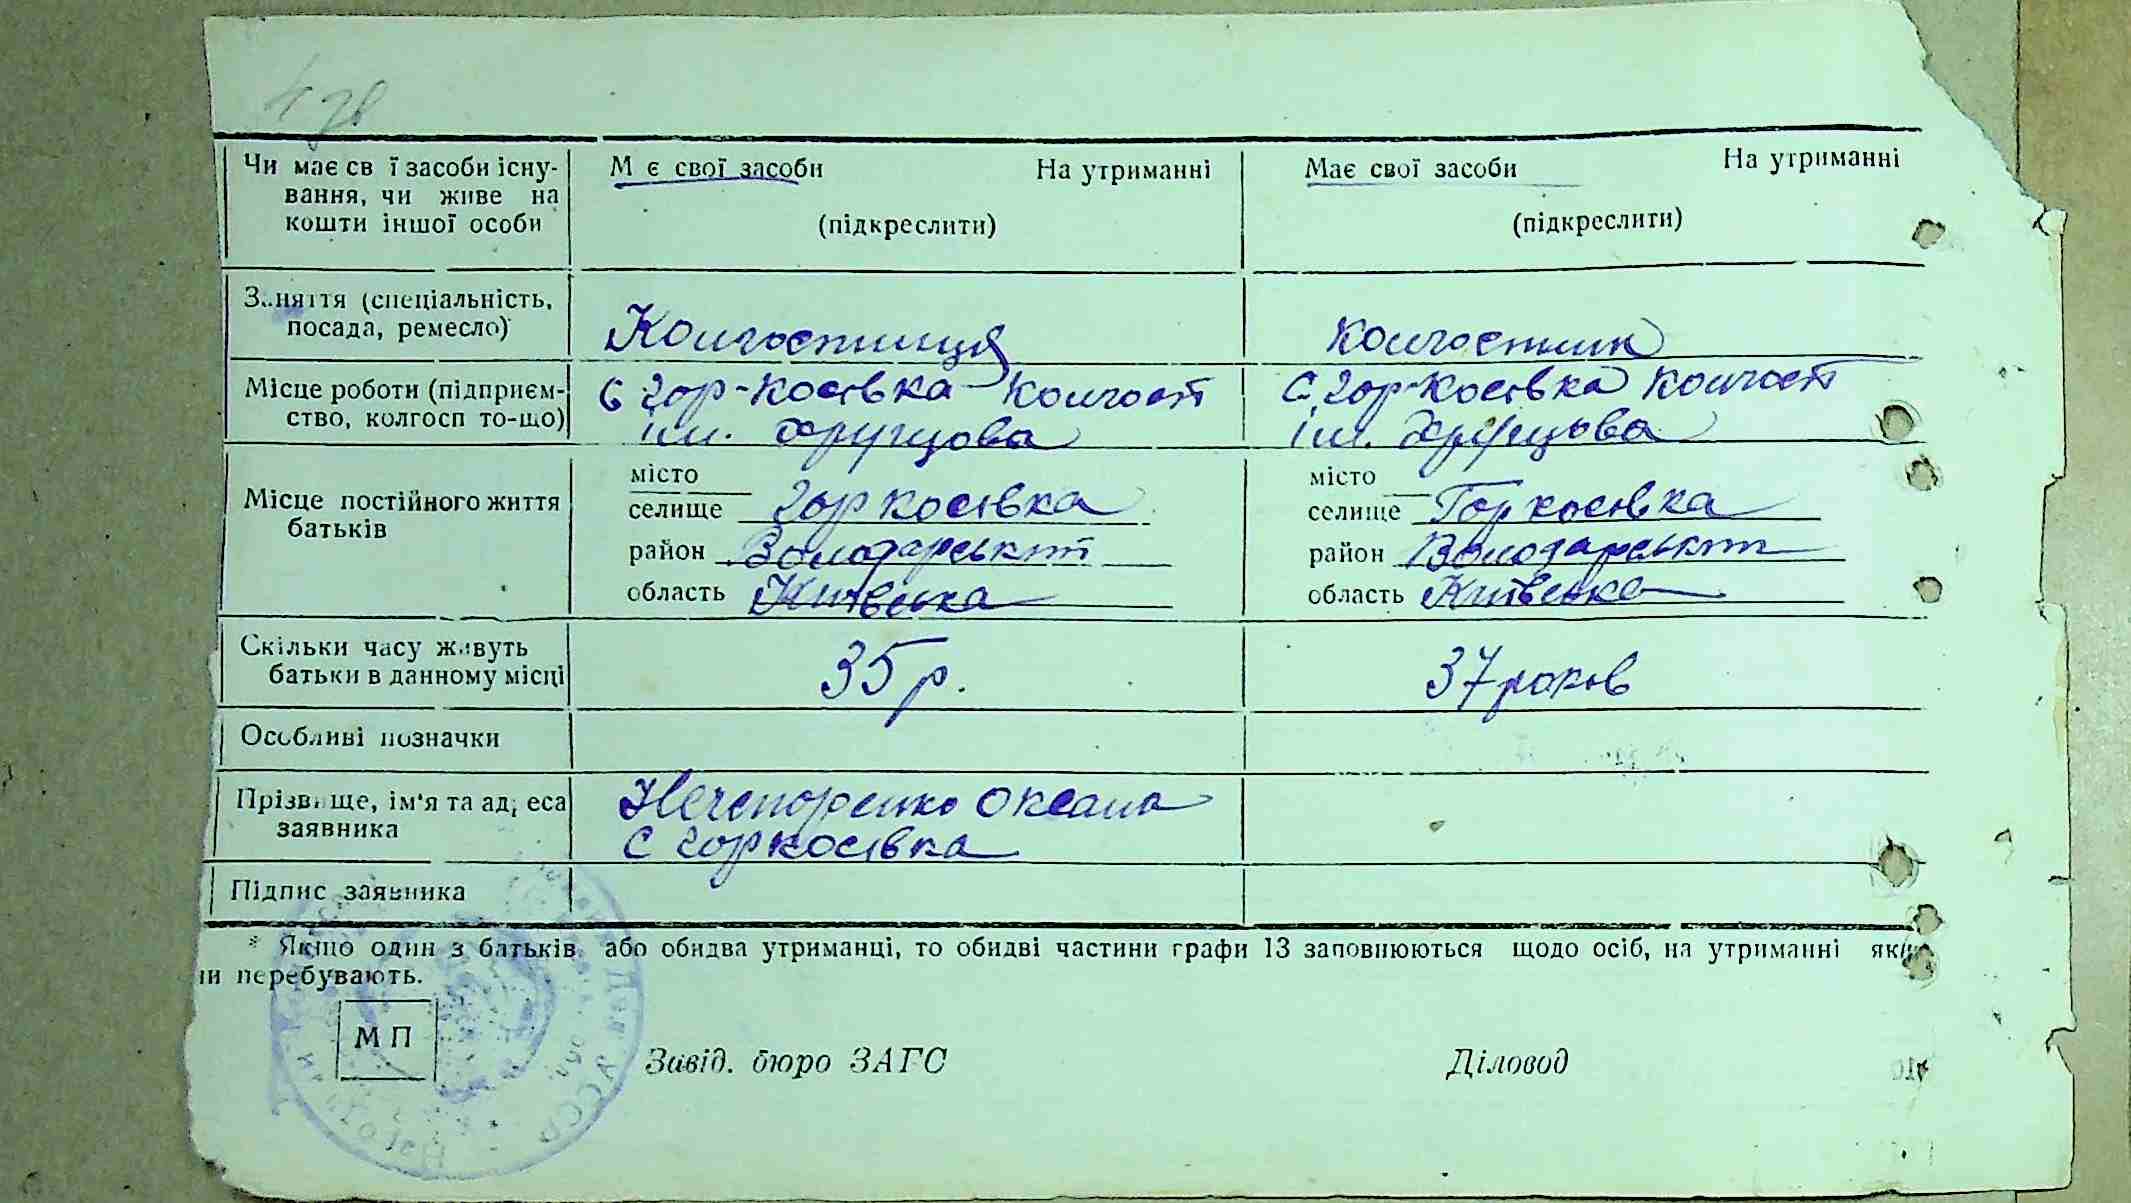 Чи має св ї засоби існу-
вання, чи живе на
кошти іншої особи
М є свої засоби На утриманні
(підкреслити)
Має свої засоби На утриманні
(підкреслити)
З..няття (спеціальність,
посада, ремесло)
Колгоспниця
Колгоспник
Місце роботи (підприєм-
ство, колгосп то-що)
с гор-Косівка Колгосп
ім. Хрущова
С. гор-Косівка Колгосп
ім. Хрущова
Місце постійного життя
батьків
місто
селище гор косівка
район Володарський
область Київська
місто
селище Гор косівка
район Володарський
область Київська
Скільки часу живуть
батьки в данному місці
35 р.
37 років
Особливі позначки
Прізвище, ім'я та ад, еса
заявника
Нечепоренко Оксана
С гор косівка
Підпис заявника
* Якщо один з батьків або обидва утриманці, то обидві частини графи 13 заповнюються щодо осіб, на утриманні
перебувають.
М П
Завід. бюро ЗАГС Діловод